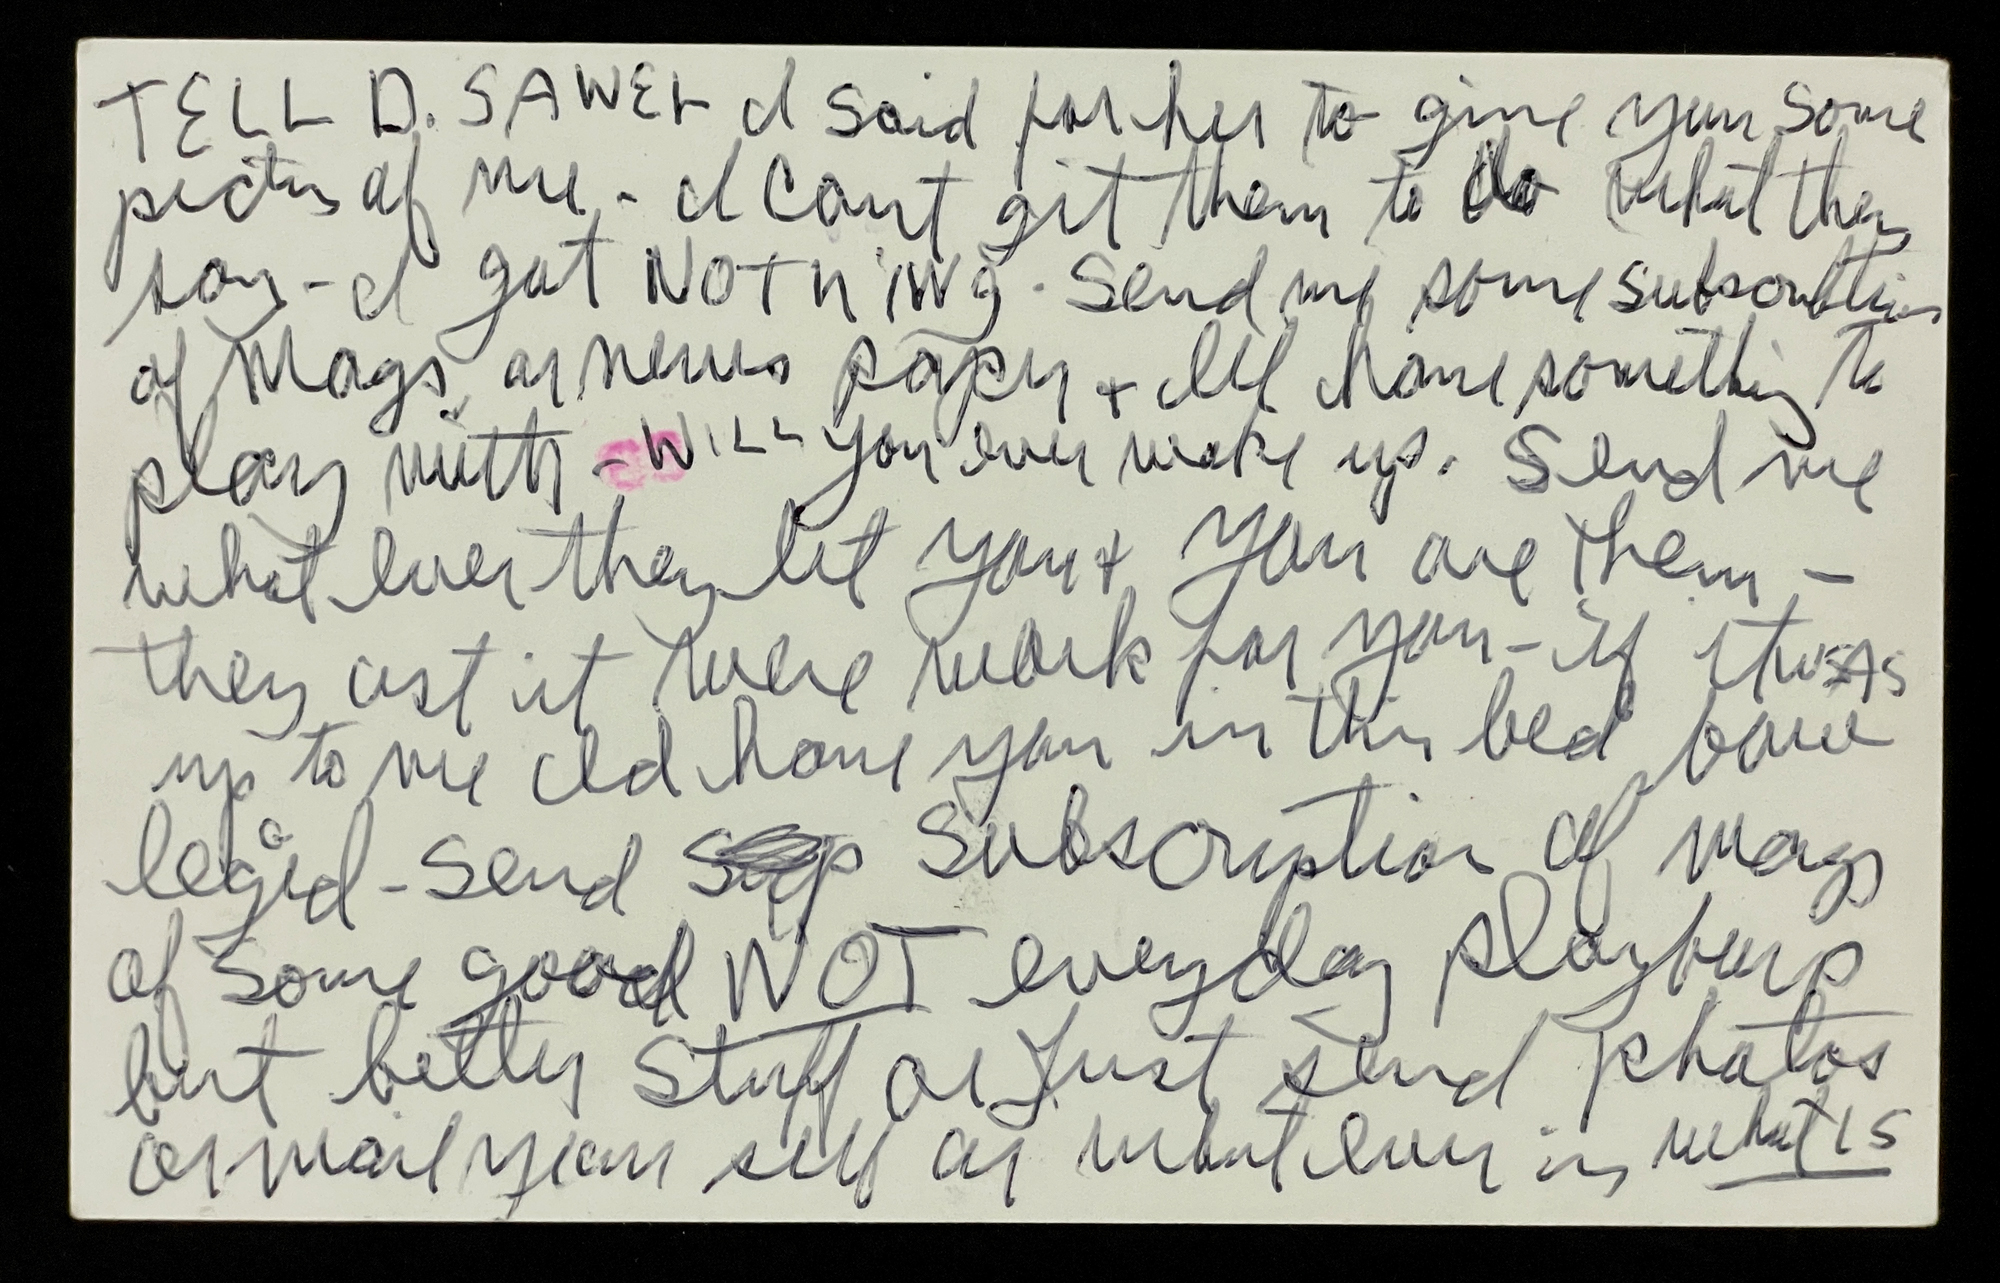 TELL D. SAWEL I said for her to give you some
pictus of me - I cant git them to do what they
say - I got NOTHiNg. Send me some subscrbtion
of Mags or news paper + Ill have something to
play with - WILL you ever wake up. Send me
what ever they let you + you are them -
they ast it were work for you - if it was
up to me Id have you in this bed
leged - Send Subscription of mags
of some good NOT everyday play
but better stuff or Just send photos
or mail your self or what ever is what IS